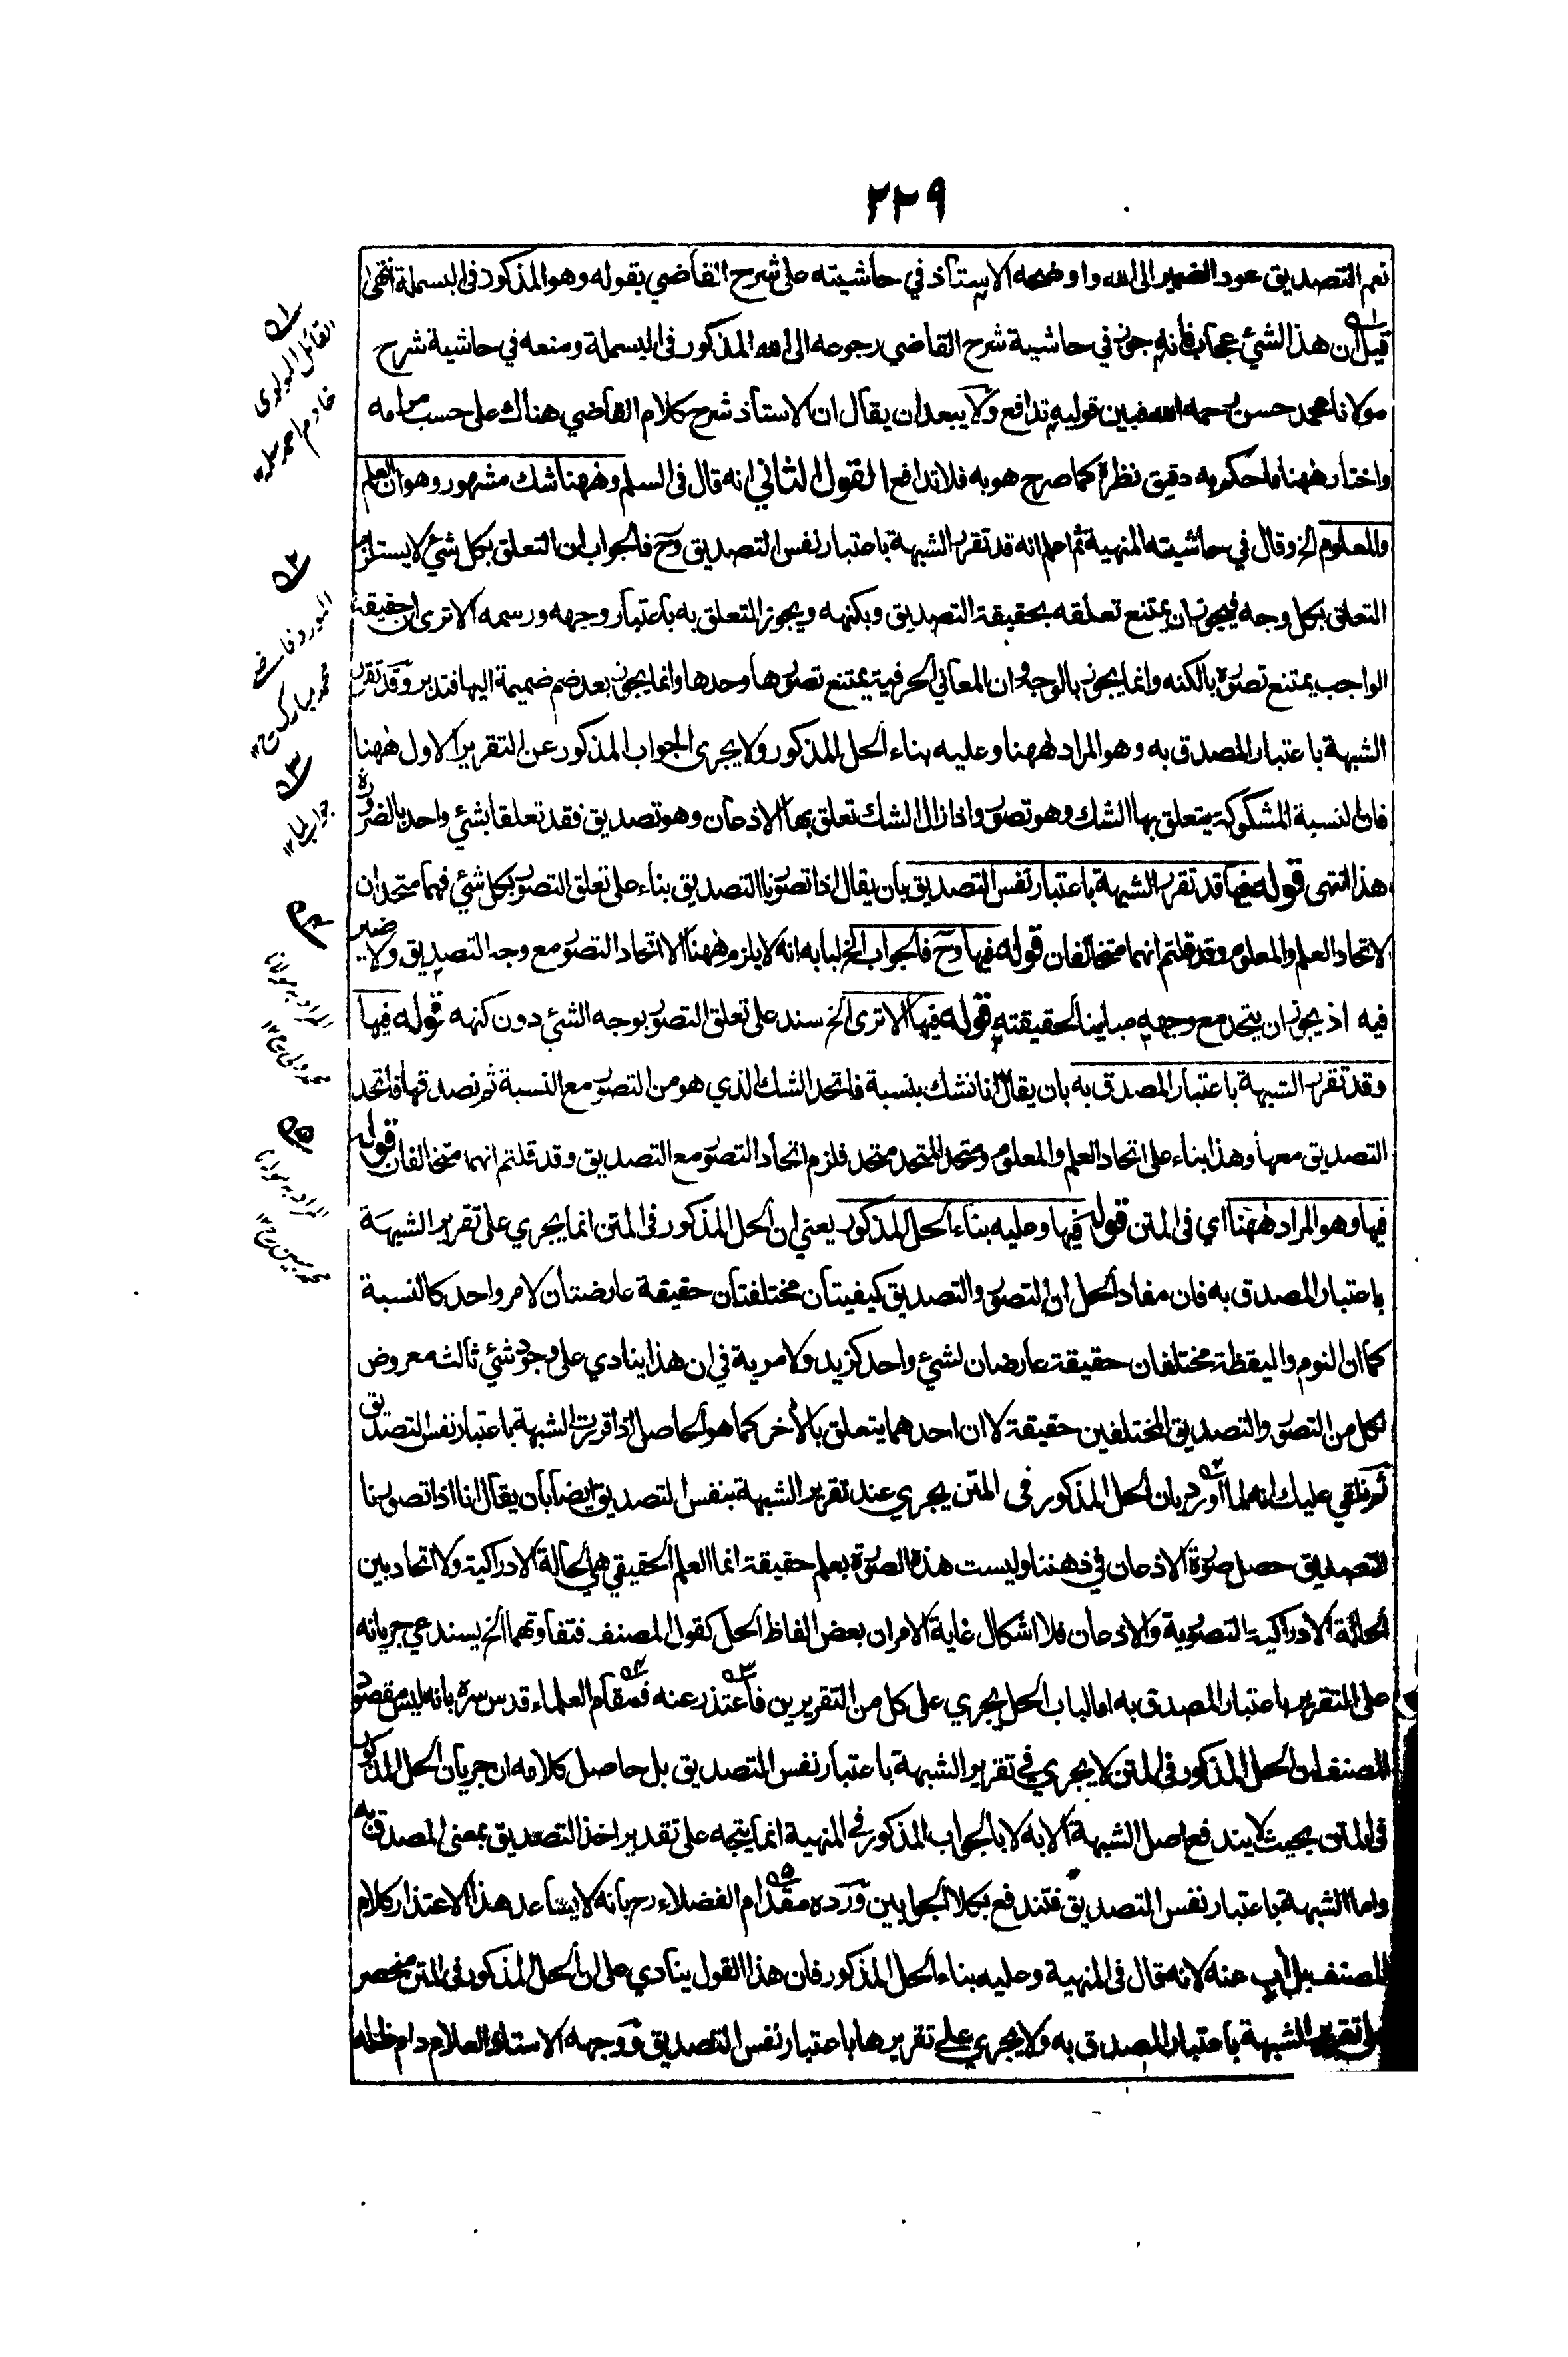 ٢٢٩
نعم التصديق عود الضمير الى الله واوضحه الاستاذ في حاشيته على شرح القاضي بقوله وهو المذكور فى البسملة انتهى
قيل ان هذا الشئ عجاب فانه جوز في حاشيية شرح القاضي رجوعه الى الله المذكور فى البسملة ومنعه في حاشية شرح
مولانا محمد حسن رحمه الله فبين قوليه تدافع ولا يبعد ان يقال ان الاستاذ شرح كلام القاضي هناك على حسب مرامه
واختار ههنا ما حكم به دقيق نظره كما صرح هو به فلا تدافع القول الثاني انه قال فى السلم وههنا شك مشهور وهو ان العلم
والمعلوم الخ وقال في حاشيته المنهية ثم اعلم انه قد تقرر الشبهة باعتبار نفس التصديق وح فالجواب ان التعلق بكل شئ لا يستلزم
التعلق بكل وجه فيجوز ان يمتنع تعلقه بحقيقة التصديق وبكنهه ويجوز التعلق به باعتبار وجهه ورسمه الا ترى ان حقيقة
الواجب يمتنع تصوره بالكنه وانما يجوز بالوجه وان المعاني الحرفية يمتنع تصورها وحدها وانما يجوز بعد ضم ضميمة اليها فتدبر وقد تقرر
الشبهة باعتبار المصدق به وهو المراد ههنا وعليه بناء الحل المذكور ولا يجرى الجواب المذكور عن التقرير الاول ههنا
فان النسبة المشكوكة يتعلق بها الشك وهو تصور واذا زال الشك تعلق بها الاذعان وهو تصديق فقد تعلقا بشئ واحد بالضرورة
هذا انتهى قوله فيها قد تقرر الشبهة باعتبار نفس التصديق بان يقال اذا تصورنا التصديق بناء على تعلق التصور بكل شئ فهما متحدان
لاتحاد العلم والمعلوم وقد قلتم انهما متخالفان قوله فيها وح فالجواب الخ لبابه انه لا يلزم ههنا الا اتحاد التصور مع وجه التصديق ولا ضير
فيه اذ يجوز ان يتحد مع وجهه مباينا لحقيقته قوله فيها الا ترى الخ سند على تعلق التصور بوجه الشئ دون كنهه قوله فيها
وقد تقرر الشبهة باعتبار المصدق به بان يقال انا نشك بنسبة فاتحد الشك الذي هو من التصور مع النسبة ثم نصدقها فاتحد
التصديق معها وهذا بناء على اتحاد العلم والمعلوم ومتحد المتحد متحد فلزم اتحاد التصور مع التصديق وقد قلتم انهما متخالفان قوله
فيها وهو المراد ههنا اي فى المتن قوله فيها وعليه بناء الحل المذكور يعني ان الحل المذكور فى المتن انما يجري على تقرير الشبهة
باعتبار المصدق به فان مفاد الحل ان التصور والتصديق كيفيتان مختلفتان حقيقة عارضتان لامر واحد كالنسبة
كما ان النوم واليقظة مختلفان حقيقة عارضان لشئ واحد كزيد ولا مرية في ان هذا ينادي على وجود شئ ثالث معروض
لكل من التصور والتصديق المختلفين حقيقة لا ان احدهما يتعلق بالأخر كما هو الحاصل اذا قررت الشبهة باعتبار نفس التصديق
ثم نلقي عليك انه لما اورد بان الحل المذكور فى المتن يجري عند تقرير الشبهة بنفس التصديق ايضا بان يقال انا اذا تصورنا
التصديق حصل صورة الاذعان في ذهننا وليست هذه الصورة بعلم حقيقة انما العلم الحقيقي هي الحالة الادراكية ولا اتحاد بين
الحالة الادراكية التصورية والاذعان فلا اشكال غاية الامر ان بعض الفاظ الحل كقول المصنف فتفاوتهما الخ يستدعي جريانه
على التقرير باعتبار المصدق به اما لباب الحل يجري على كل من التقريرين فاعتذر عنه قمقام العلماء قدس سره بانه ليس مقصود
المصنف ان الحل المذكور فى المتن لا يجري في تقرير الشبهة باعتبار نفس التصديق بل حاصل كلامه ان جريان الحل المذكور
فى المتن بحيث لا يندفع اصل الشبهة الا به لا بالجواب المذكور فى المنهية انما يتجه على تقدير اخذ التصديق بمعنى المصدق به
واما الشبهة باعتبار نفس التصديق فتندفع بكلا الجوابين ورده مقدام الفضلاء رح بانه لا يساعد هذا الاعتذار كلام
المصنف بل أب عنه لانه قال فى المنهية وعليه بناء الحل المذكور فان هذا القول ينادي على ان الحل المذكور فى المتن منحصر
على تقرير الشبهة باعتبار المصدق به ولا يجري على تقريرها باعتبار نفس التصديق ووجهه الاستاذ العلام دام ظله
١
القائل المولوى
خادم احمد سلمه ١٢
٢
المورد قاضے
محمد مبارك رح ١٢
٣
جواب لما ١٢
٤
المراد به مولانا
محمد ولى رح ١٢
٥
المراد به مولانا
محمد مبين رح ١٢